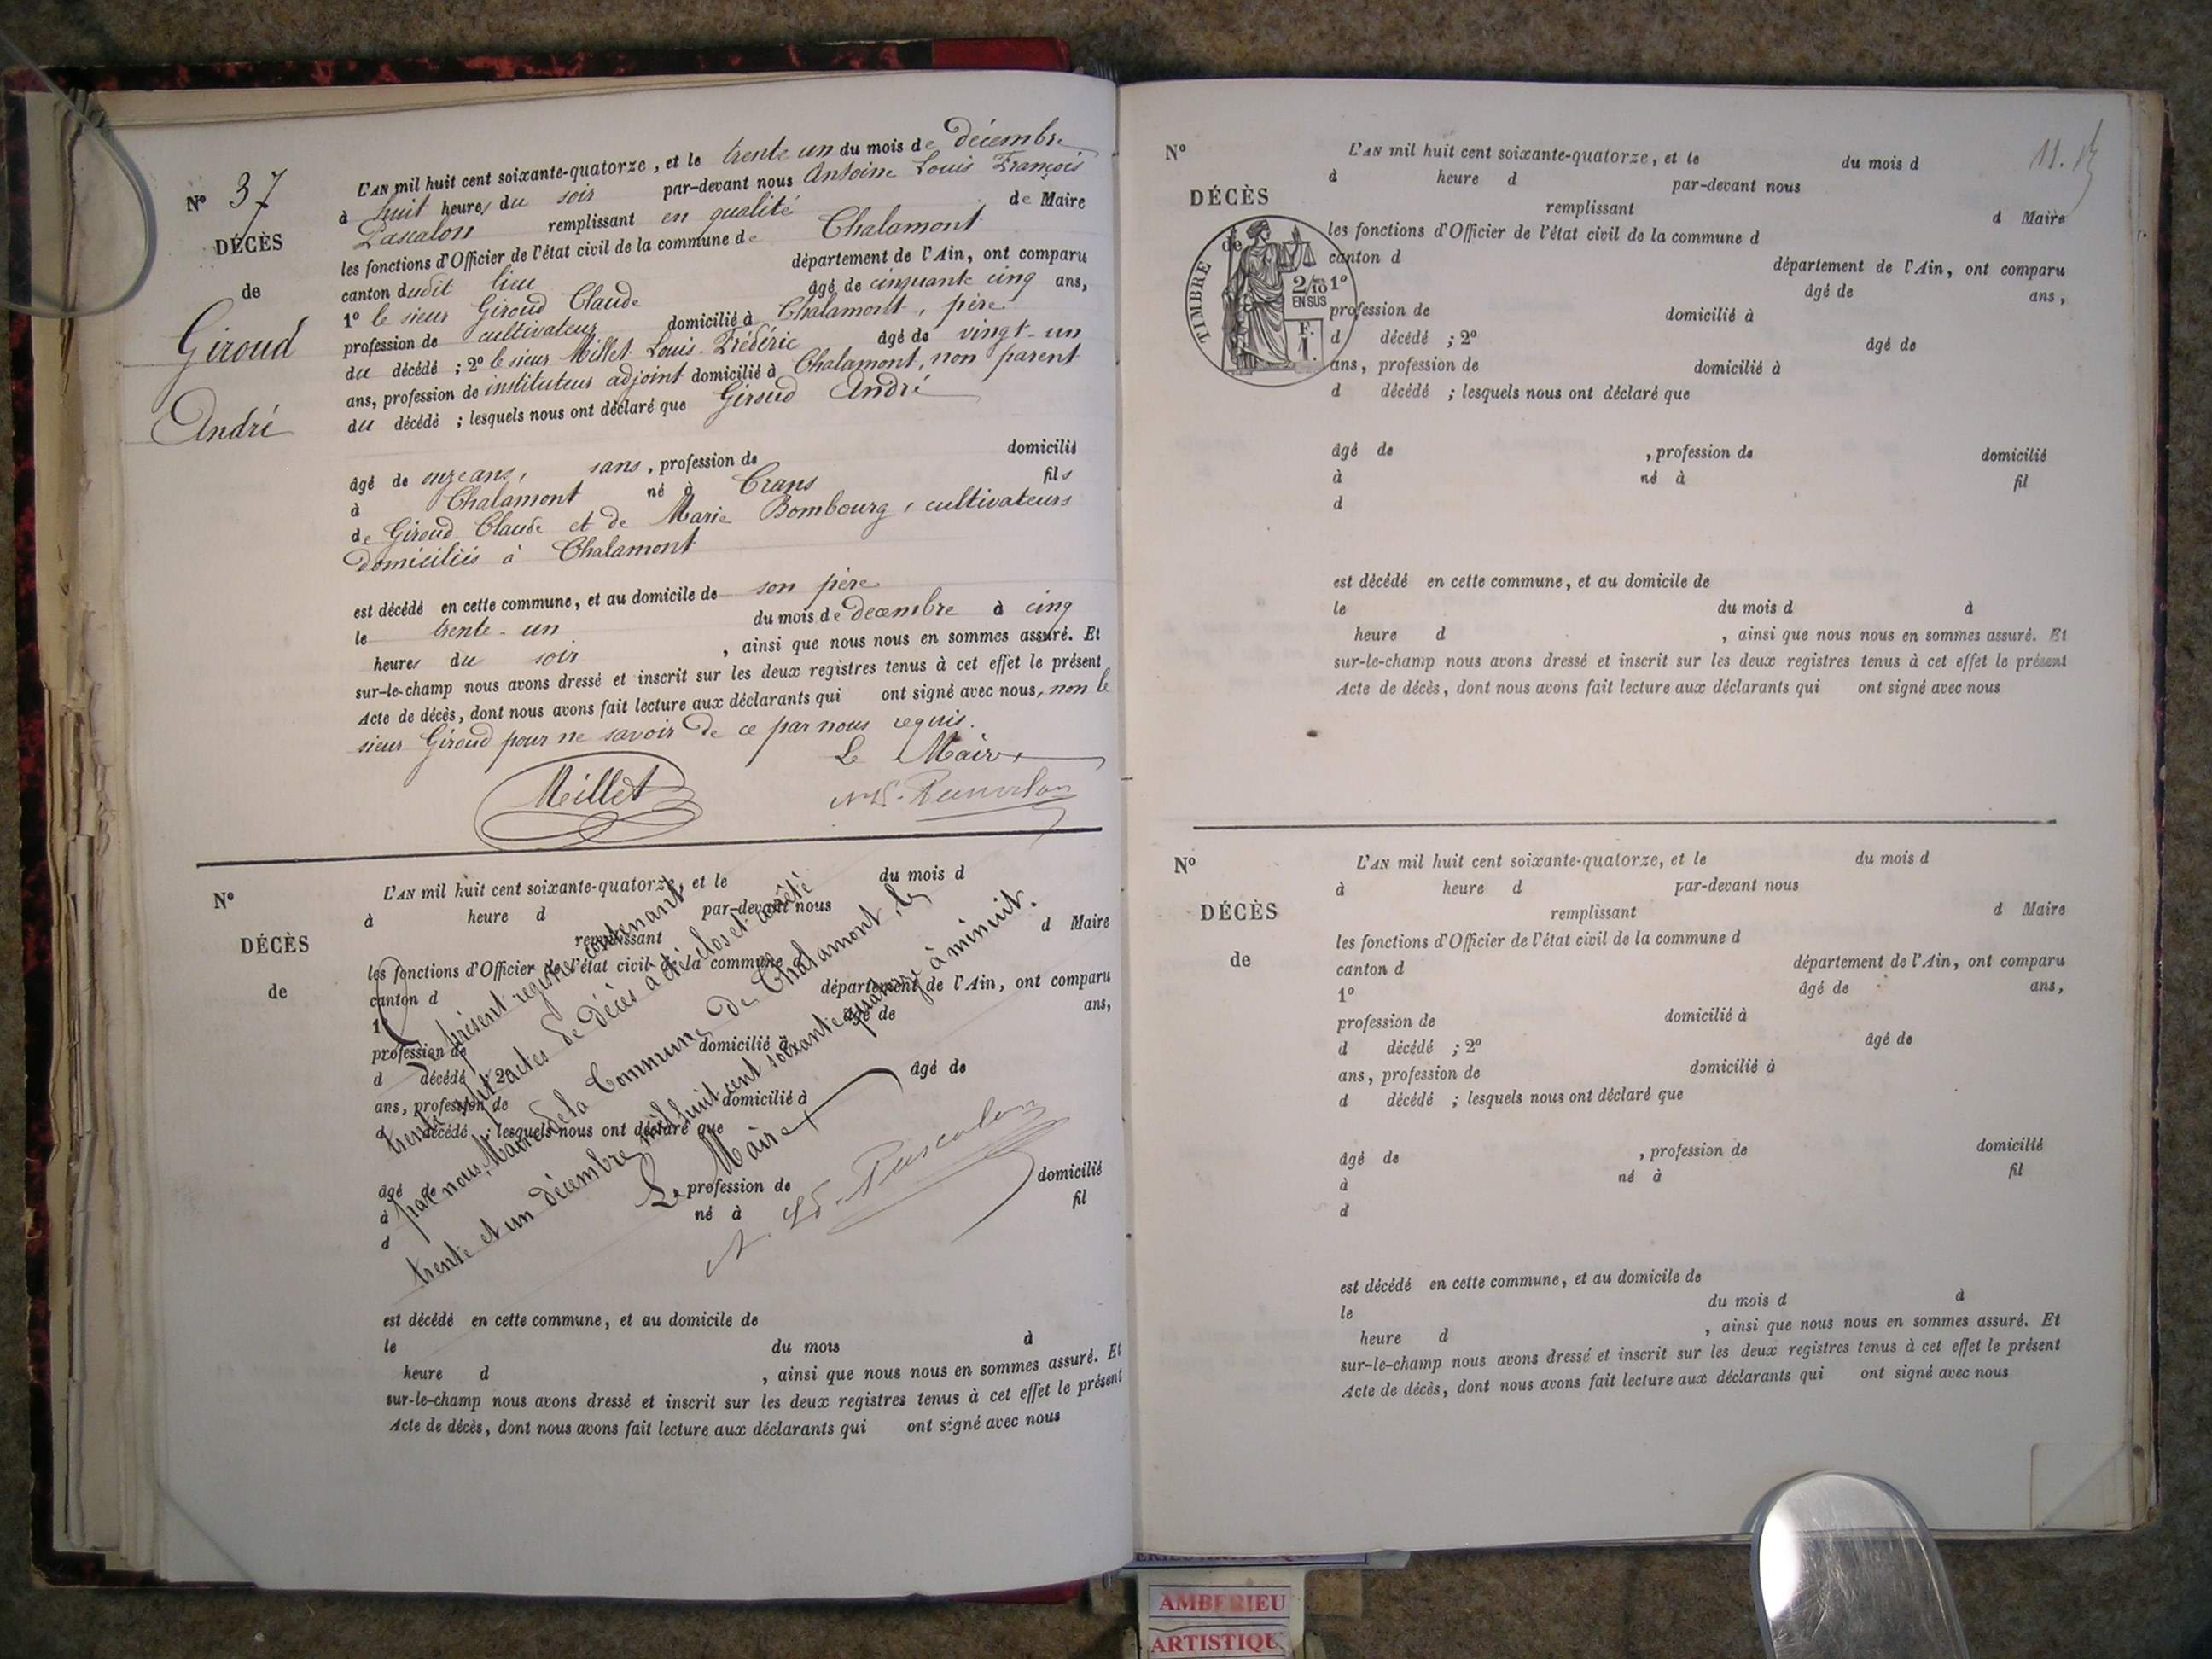 N° 37
DÉCÈS
de
Giroud
André
L'AN mil huit cent soixante-quatorze, et le trente un du mois de décembre
à huit heures du soir par-devant nous Antoine Louis François
Pascalon remplissant en qualité de Maire
les fonctions d'Officier de l'état civil de la commune de Chalamont
canton dudit lieu département de l'Ain, ont comparu
1° le sieur Giroud Claude âgé de cinquante cinq ans,
profession de cultivateur domicilié à Chalamont, père
du décédé ; 2° le sieur Millet Louis-Frédéric âgé de vingt-un
ans, profession de instituteur adjoint domicilié à Chalamont, non parent
du décédé ; lesquels nous ont déclaré que Giroud André
âgé de onze ans, sans, profession de domicilié
à Chalamont né à Crans fils
de Giroud Claude et de Marie Bombourg, cultivateurs
domiciliés à Chalamont
est décédé en cette commune, et au domicile de son père
le trente-un du mois de décembre à cinq
heures du soir, ainsi que nous nous en sommes assuré. Et
sur-le-champ nous avons dressé et inscrit sur les deux registres tenus à cet effet le présent
Acte de décès, dont nous avons fait lecture aux déclarants qui ont signé avec nous, non le
sieur Giroud pour ne savoir de ce par nous requis.
Le Maire
Millet
N° 
DÉCÈS
de
L'AN mil huit cent soixante-quatorze, et le du mois d
à heure d par-devant nous
remplissant d Maire
les fonctions d'Officier de l'état civil de la commune d
canton d département de l'Ain, ont comparu
1° âgé de ans,
profession de domicilié à
d décédé ; 2° âgé de
ans, profession de domicilié à
d décédé ; lesquels nous ont déclaré que
âgé de , profession de domicilié
à né à fil
d
Le présent registre contenant
trente sept actes de décès a été clos et arrêté
par nous, Maire de la Commune de Chalamont, le
trente et un décembre mil huit cent soixante quatorze à minuit.
Le Maire
Pascalon
est décédé en cette commune, et au domicile de
le du mois à
heure d , ainsi que nous nous en sommes assuré. Et
sur-le-champ nous avons dressé et inscrit sur les deux registres tenus à cet effet le présent
Acte de décès, dont nous avons fait lecture aux déclarants qui ont signé avec nous
11.
N°
DÉCÈS
de
TIMBRE
2/10
EN SUS
F.
1.
L'AN mil huit cent soixante-quatorze, et le du mois d
à heure d par-devant nous
remplissant d Maire
les fonctions d'Officier de l'état civil de la commune d
canton d département de l'Ain, ont comparu
1° âgé de ans,
profession de domicilié à
d décédé ; 2° âgé de
ans, profession de domicilié à
d décédé ; lesquels nous ont déclaré que
âgé de , profession de domicilié
à né à fil
d
est décédé en cette commune, et au domicile de
le du mois d à
heure d , ainsi que nous nous en sommes assuré. Et
sur-le-champ nous avons dressé et inscrit sur les deux registres tenus à cet effet le présent
Acte de décès, dont nous avons fait lecture aux déclarants qui ont signé avec nous
N°
DÉCÈS
de
L'AN mil huit cent soixante-quatorze, et le du mois d
à heure d par-devant nous
remplissant d Maire
les fonctions d'Officier de l'état civil de la commune d
canton d département de l'Ain, ont comparu
1° âgé de ans,
profession de domicilié à
d décédé ; 2° âgé de
ans, profession de domicilié à
d décédé ; lesquels nous ont déclaré que
âgé de , profession de domicilié
à né à fil
d
est décédé en cette commune, et au domicile de
le du mois d à
heure d , ainsi que nous nous en sommes assuré. Et
sur-le-champ nous avons dressé et inscrit sur les deux registres tenus à cet effet le présent
Acte de décès, dont nous avons fait lecture aux déclarants qui ont signé avec nous
AMBERIEU
ARTISTIQU